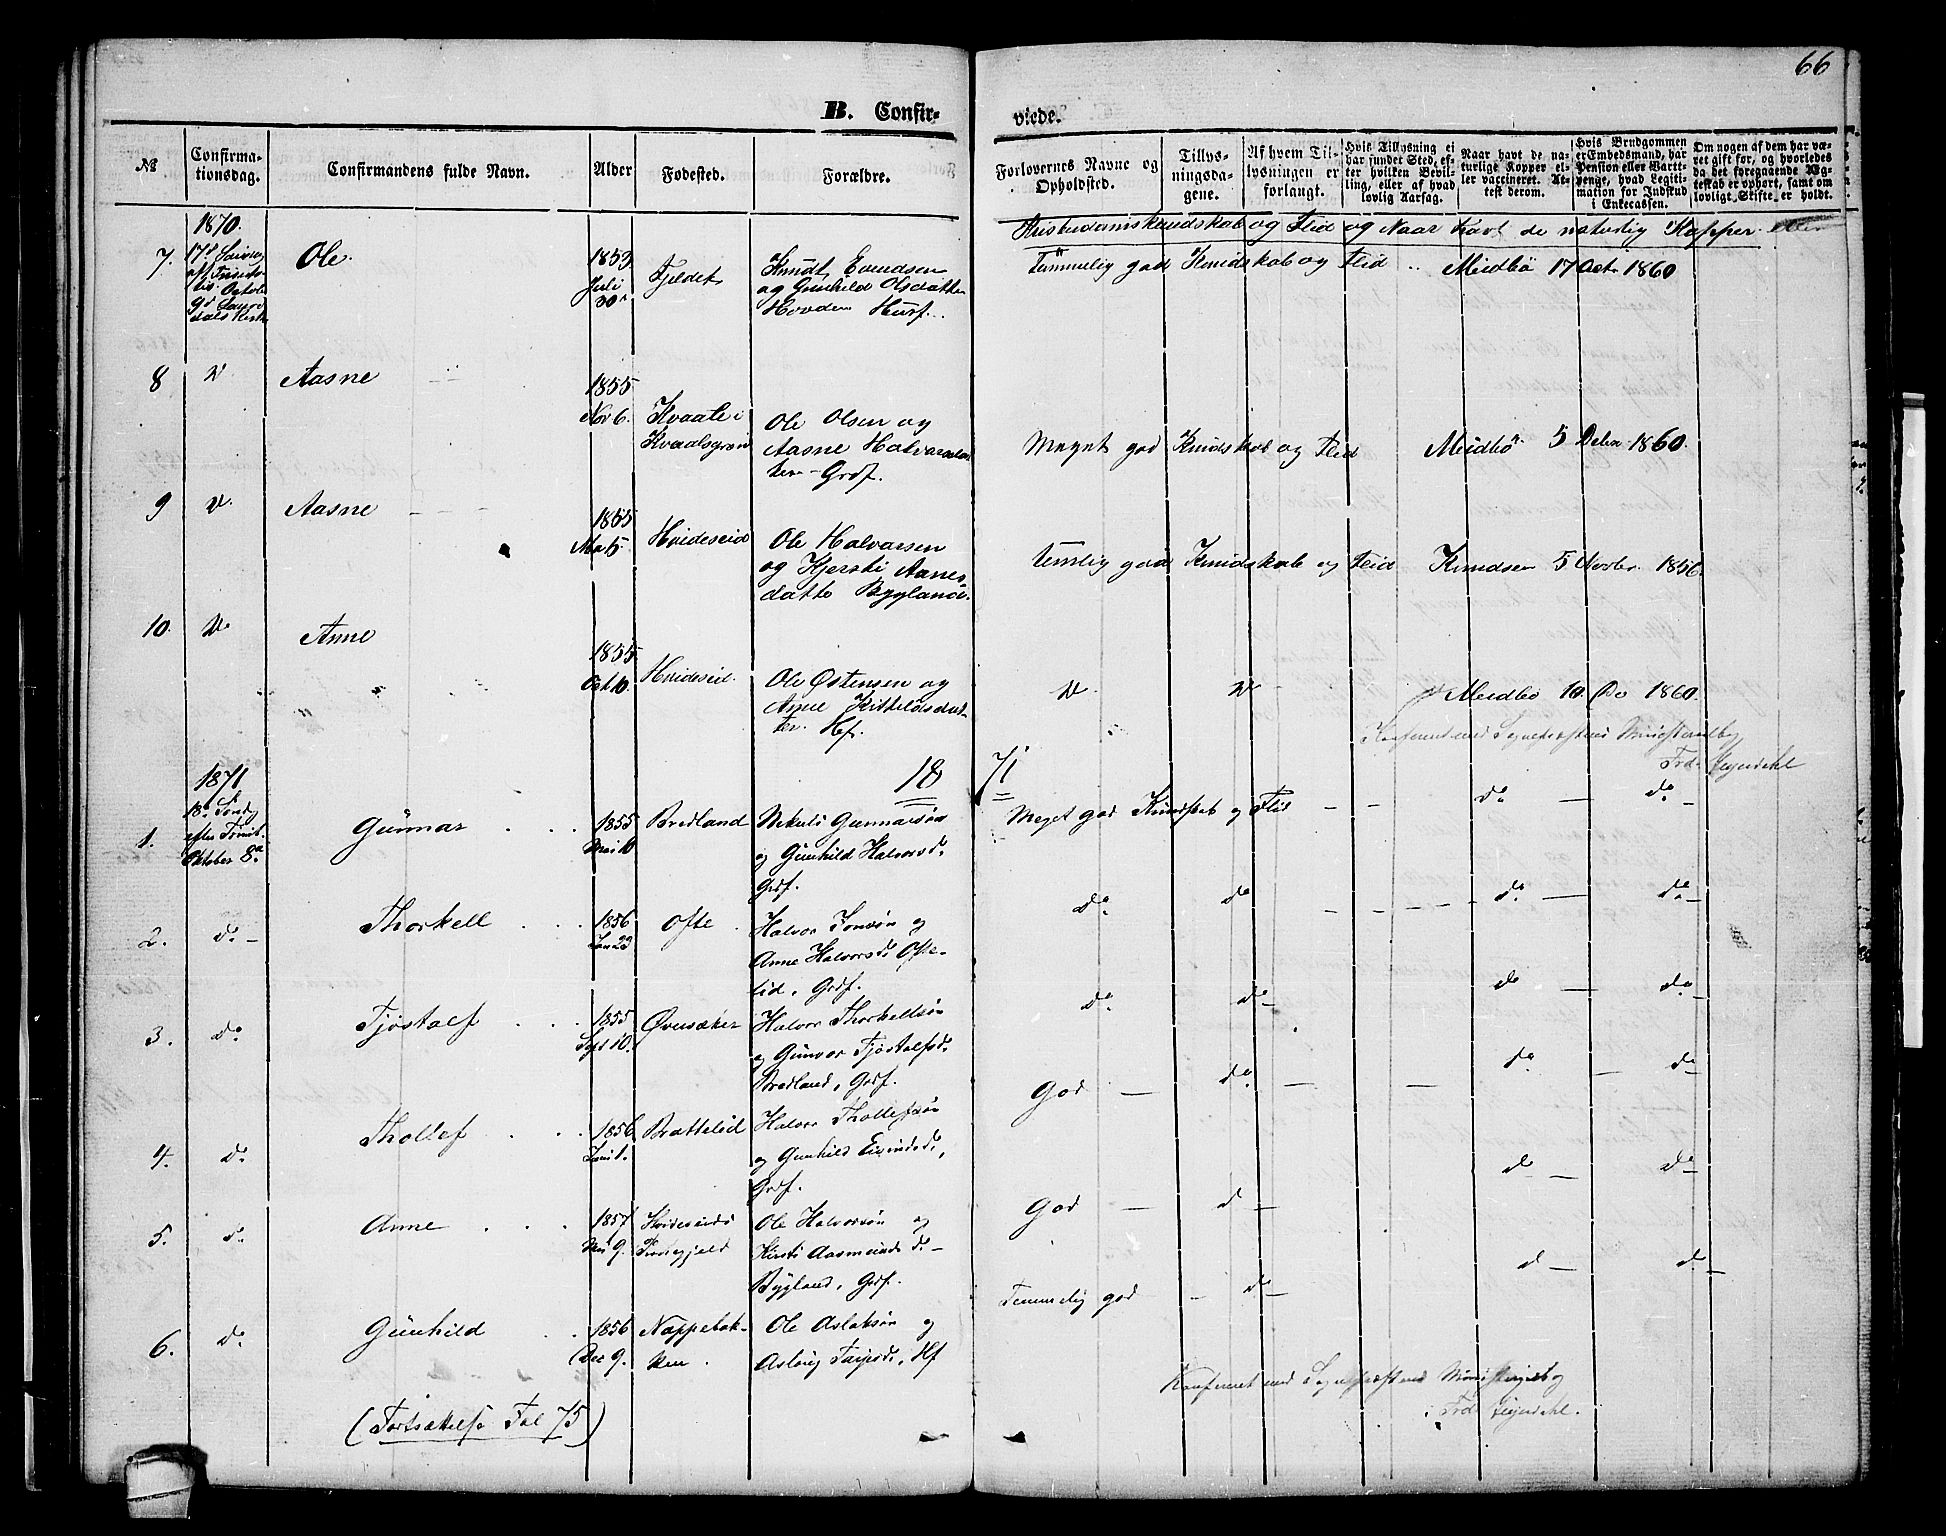 66
B. Confir-
viede.
№
Confirma-
tionsdag.
Confirmandens fulde Navn.
Alder
Fødested.
Forældre.
Forlovernes Navne og
Opholdsted.
Tillys-
ningsda-
gene.
Af hvem Til-
lysningen er
forlangt.
Hvis Tillysning ei
har fundet Sted, ef-
ter hvilken Bevil-
ling, eller af hvad
lovlig Aarsag.
Naar havt de na-
turlige Kopper el-
ler vaccineret. At-
test derom.
Hvis Brudgommen
er Embedsmand, har
Pension eller Vartt-
penge, hvad Legiti-
mation for Indskud
i Enkecassen.
Om nogen af dem har væ-
ret gift før, og hvorledes
da det foregaaende Æg-
teskab er ophørt, samt om
lovligt Skifte er holdt.
Kristendomskundskab og Flid og Naar havt de naturlig Kopper eller
1870.
7. Ole. 1853 Juli 30 Fjeldet
Knudt Evendsen
og Gunhild Olsdatter
Hovden Husf.
Temmelig god Kundskab og Flid " Meidbö 17 Octr 1860
8 Do Aasne 1855 Nov 6. Kvaale i
Kvaalsgren
Ole Olsen og
Aasne Halvorsdat
ter - Grdf.
Meget god Kundskab og Flid Meidbö 5 Debr 1860.
9 Do. Aasne 1855 Mai 5. Hvideseid
Ole Halvorsen
og Kjersti Aanes
datte Bygland
temlig god Kundskab og Flid Knudsen 5 Novbr. 1856.
10. Do Anne 1855 Oct 10. Hvideseid.
Ole Østensen og
Anne Kittelsdat-
ter. Hf.
Do. Do Meidbö 10 Do 1860.
Konfereret med Sognepræstens Ministerialbog
Frd. Heyerdahl
1871 18 71
18. Sondg
efter Trinit.
Oktober 8de
1. Gunnar 1855 Mai 10 Bredland
Nekuls Gunnarsøn
og Gunhild Halvorsd.
Grdf.
Meget god Kundskab og Flid - - do - do -
2. do - Thorkell 1856 Jan 23 Ofte
Halvor Jonsøn og
Anne Halvorsd. Ofte-
lid, Grdf.
do do - - - - do - do -
3. do Tjøstolf 1855 Sept 10. Øversaker
Halvor Thorkellsøn
og Gunvor Tjøstolfsd.
Bredland, Grdf.
do do - do - do
4. do Thollef 1856 Brattelid
Halvor Thollefsøn
og Gunhild Eivindsd.,
Grdf.
God - do - - do - do -
5. do Anne 1857 Mai 9. Hvideseids
Præstegjeld
Ole Halvorsøn og
Kirsti Aasmundsd. -
Bygland, Grdf.
God - do - do - do -
6. do Gunhild 1856 Dec 9. Nappebak-
ken.
Ole Aslaksøn og
Aslaug Taipsd., Hf
Temmelig god - do - do - do -
(Fortsættelse Fol 75)
Konfereret med Sognepræstens Ministerialbog
Frd. Heyerdahl.